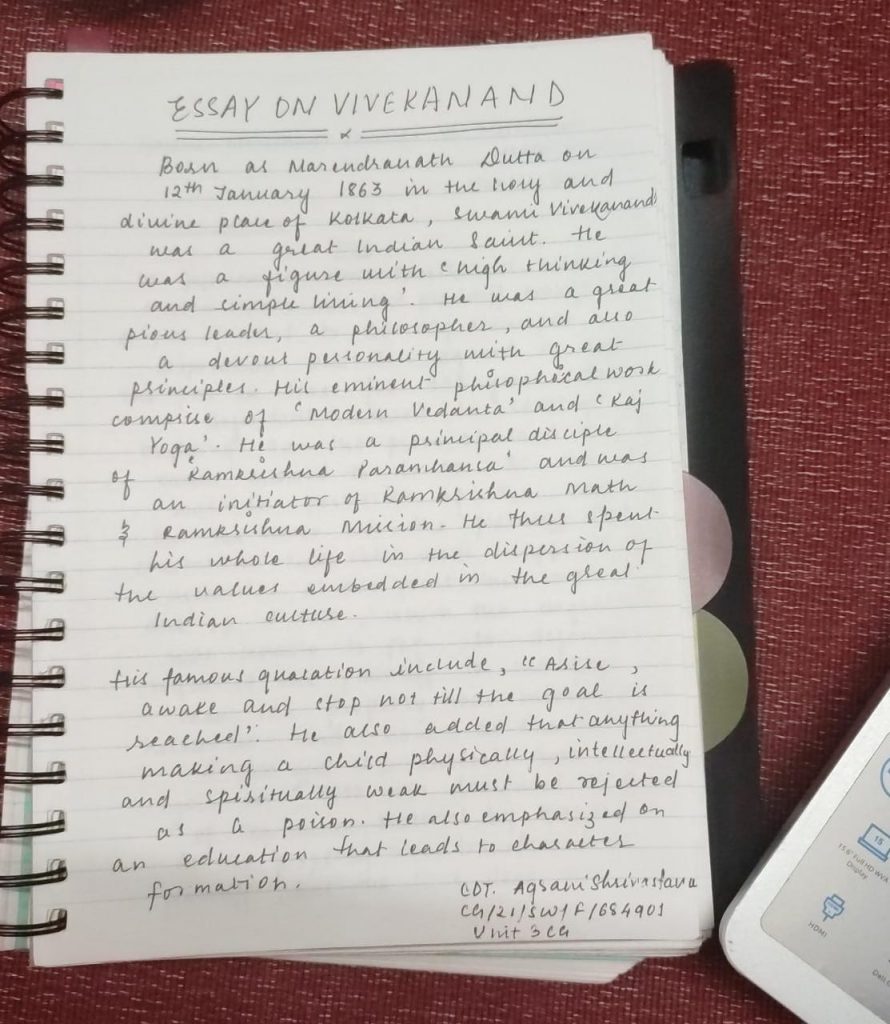 ESSAY ON VIVEKANAND
Born as Narendranath Dutta on
12th January 1863 in the holy and
divine place of Kolkata, Swami Vivekanand
was a great Indian Saint. He
was a figure with 'high thinking
and simple living'. He was a great
pious leader, a philosopher, and also
a devout personality with great
principles. His eminent philosophical work
comprise of 'Modern Vedanta' and 'Raj
Yoga'. He was a principal disciple
of 'Ramkrishna Paramhansa' and was
an initiator of Ramkrishna Math
& Ramkrishna Mission. He thus spent
his whole life in the dispersion of
the values embedded in the great
Indian culture.
His famous quatation include, "Arise,
awake and stop not till the goal is
reached". He also added that anything
making a child physically, intellectually
and spiritually weak must be rejected
as a poison. He also emphasized on
an education that leads to character
formation.
CDT. Agsani Shrivastava
CG/21/SW/F/684901
Unit 3CG
15
15.6" Full HD WVA
Display
HDMI